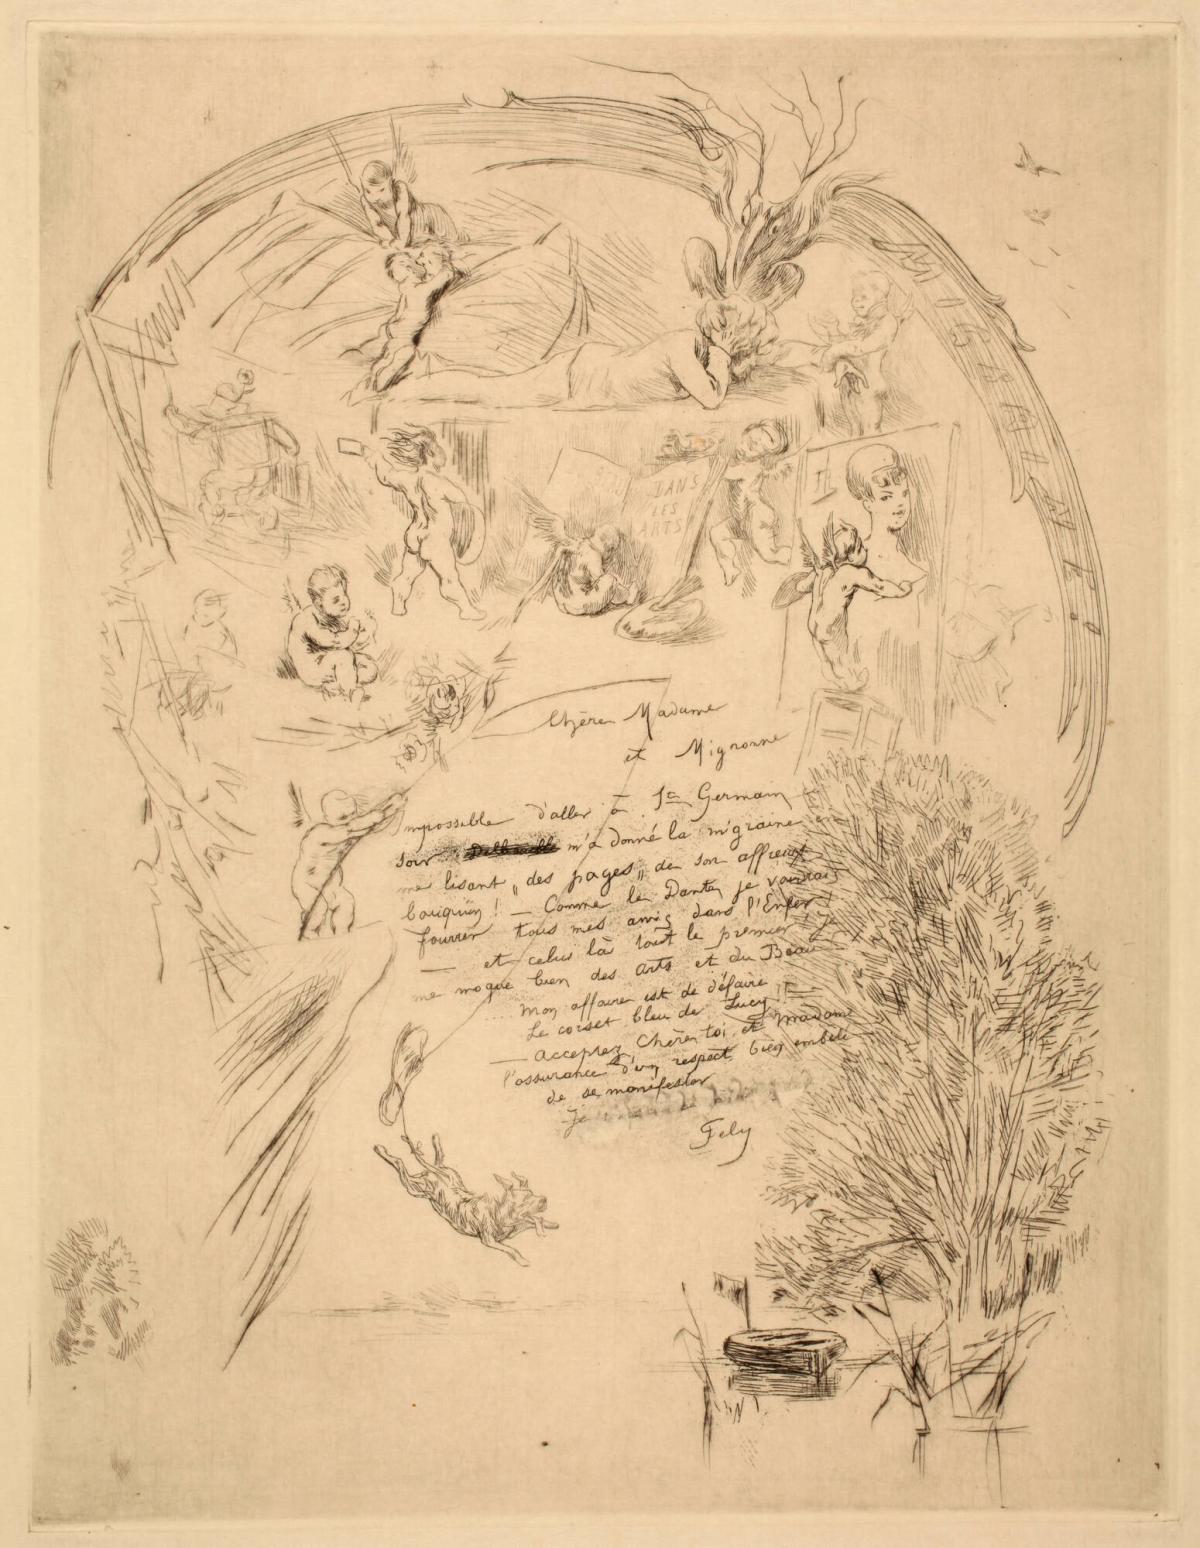 MIGRAINE!
DANS
LES
ARTS
Chère Madame
et Mignonne
Impossible d'aller à St Germain
soir m'a donné la migraine en
me lisant „des pages„ de son affreux
bouquin ! — Comme le Dante, je voudrais
fourrer tous mes amis dans l'Enfer
— et celui là tout le premier ! Je
me moque bien des arts et du Beau
mon affaire est de défaire
Le corset bleu de Lucy !! —
— acceptez Chère, toi et Madame
l'assurance d'un respect bien embêté
de se manifester
Je
Fely